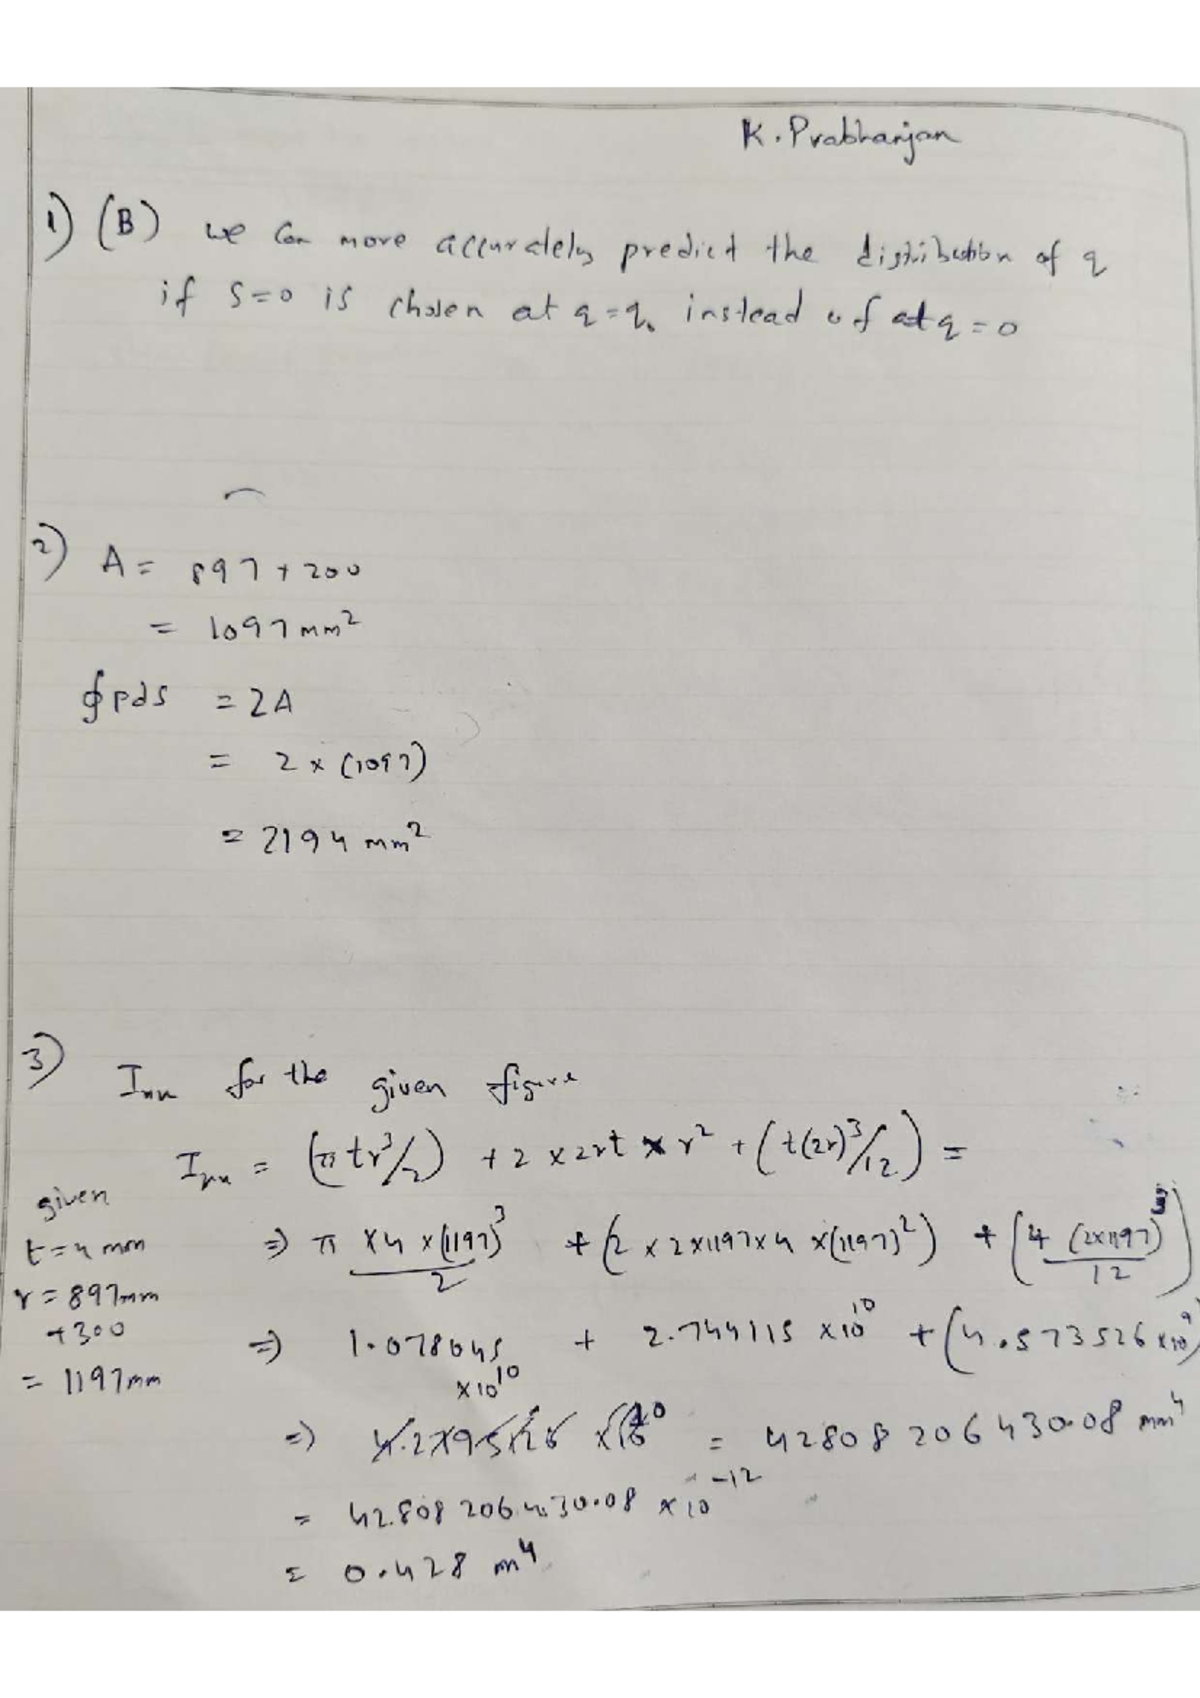 K. Prabhanjan
1) (B) we can more accurately predict the distribution of q
if S=0 is chosen at q=q₀ instead of at q=0
2) A = 897+200
= 1097 mm²
∮pds = 2A
= 2 × (1097)
= 2194 mm²
3) Ixx for the given figure
Ixx = (πtr³/2) + 2 × 2rt × r² + (t(2r)³/12) =
given
t = 4 mm
r = 897mm
+300
= 1197mm
⇒ π × 4 × (1197)³/2 + (2 × 2×1197×4 ×(1197)²) + (4 (2×1197)³/12)
⇒ 1.078045 ×10¹⁰ + 2.744115 ×10¹⁰ + (4.573526 ×10⁹)
⇒ = 42808206430.08 mm⁴
= 42808206430.08 ×10⁻¹²
= 0.428 m⁴